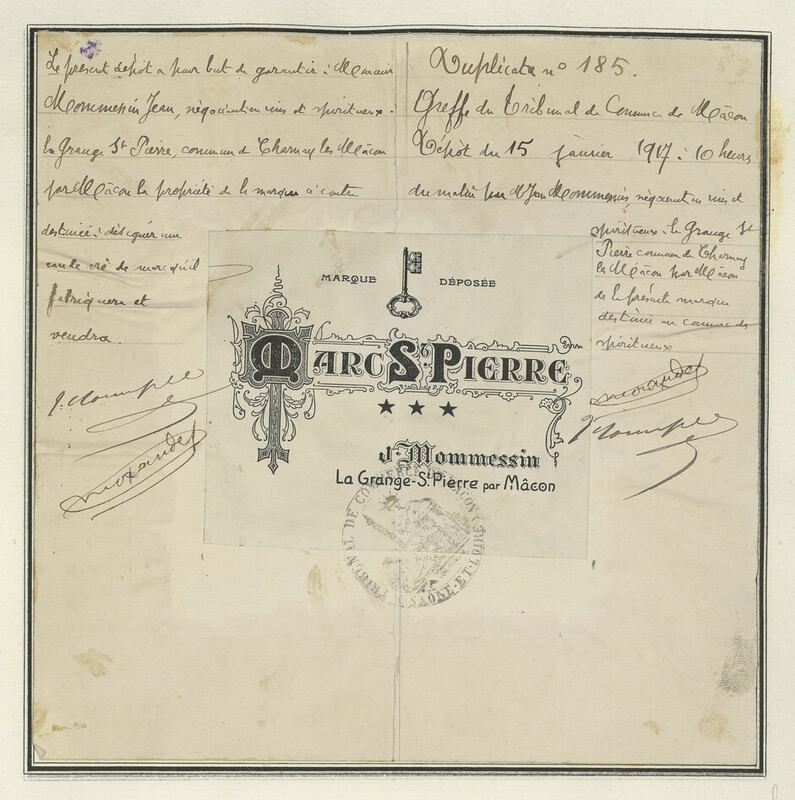 Le présent dépôt a pour but de garantir à Monsieur
Mommessin Jean, négociant en vins et spiritueux à
la Grange St Pierre, commune de Charnay les Mâcon
par Mâcon la propriété de la marque ci contre
destinée à désigner une
eau de vie de marc qu'il
fabriquera et
vendra.
Duplicata no 185.
Greffe du Tribunal de Commerce de Mâcon
Dépôt du 15 janvier 1917 à 10 heures
du matin par M Jean Mommessin, négociant en vins et
spiritueux à la Grange St
Pierre commune de Charnay
les Mâcon par Mâcon
de la présente marque
destinée au commerce des
spiritueux
MARQUE DÉPOSÉE
MARC ST PIERRE
★ ★ ★
J. Mommessin
La Grange-St Pierre par Mâcon
TRIBUNAL DE COMMERCE DE MÂCON
SAÔNE-ET-LOIRE